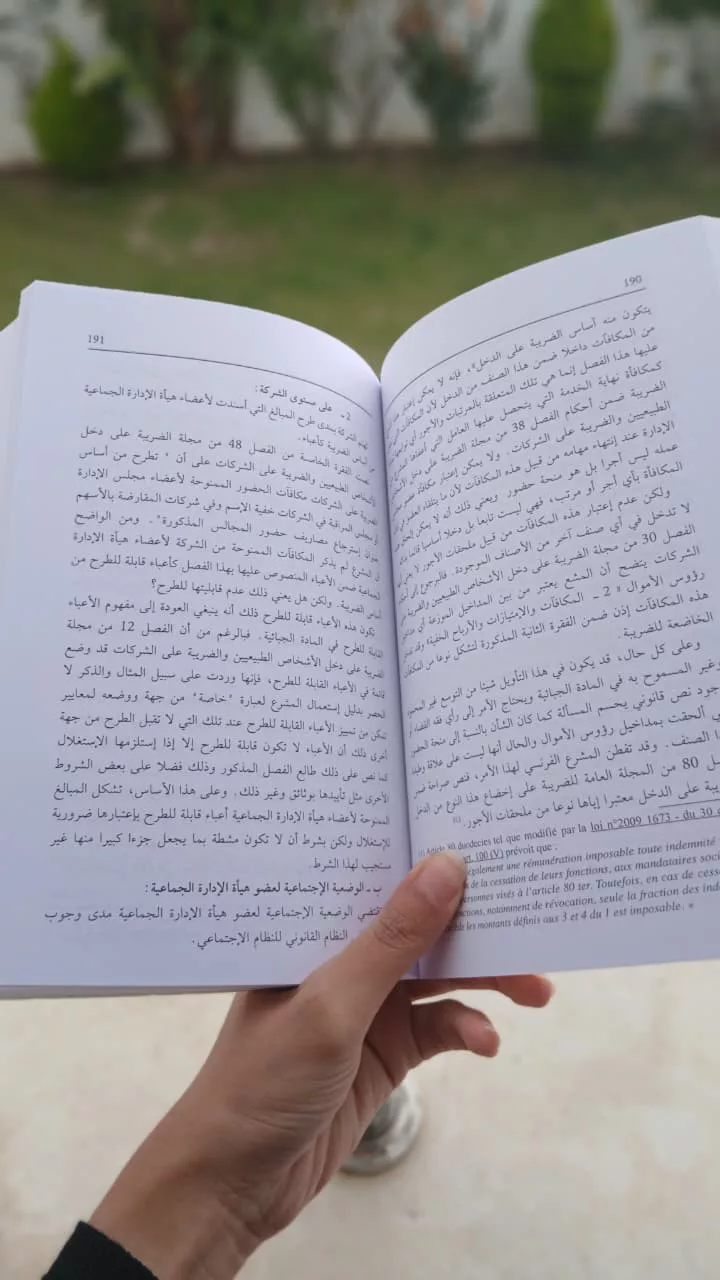 190
يتكون منه أساس الضريبة على الدخل»، فإنه لا يمكن إعتبار
من المكافآت داخلا ضمن هذا الصنف من الدخل لأن المكافآت
عليها هذا الفصل إنما هي تلك المتعلقة بالمرتبات والأجور أي
كمكافأة نهاية الخدمة التي يتحصل عليها العامل التي
الضريبة ضمن أحكام الفصل 38 من مجلة الضريبة على دخل
الطبيعيين والضريبة على الشركات. ولا يمكن إعتبار مكافأة عضو
الإدارة عند إنتهاء مهامه من قبيل هذه المكافآت لأن ما يتلقاه العضو
عمله ليس أجرا بل هو منحة حضور. ويعني ذلك أنه لا يمكن
المكافأة بأي أجر أو مرتب، فهي ليست تابعا بل دخلا أساسيا
ولكن عدم إعتبار هذه المكافآت من قبيل ملحقات الأجور لا يعني
لا تدخل في أي صنف آخر من الأصناف الموجودة. فبالرجوع إلى
الفصل 30 من مجلة الضريبة على دخل الأشخاص الطبيعيين والضريبة
الشركات يتضح أن المشرع يعتبر من بين المداخيل الموزعة أي
رؤوس الأموال « 2 - المكافآت والإمتيازات والأرباح الخفية»
هذه المكافآت إذن ضمن الفقرة الثانية المذكورة لتشكل نوعا من المكافآت
الخاضعة للضريبة.
وعلى كل حال، قد يكون في هذا التأويل شيئا من التوسع غير
وغير المسموح به في المادة الجبائية ويحتاج الأمر إلى رأي فقه القضاء أو
جود نص قانوني يحسم المسألة كما كان الشأن بالنسبة إلى منحة الحضور
ي ألحقت بمداخيل رؤوس الأموال والحال أنها ليست على علاقة
ا الصنف. وقد تفطن المشرع الفرنسي لهذا الأمر، فنص صراحة ضمن
ل 80 من المجلة العامة للضريبة على إخضاع هذا النوع من الدخل
يبة على الدخل معتبرا إياها نوعا من ملحقات الأجور.
(1) Article 80 duodecies tel que modifié par la loi n°2009 1673 - du 30 d
art. 100 (V) prévoit que :
également une rémunération imposable toute indemnité
de la cessation de leurs fonctions, aux mandataires soci
personnes visés à l'article 80 ter. Toutefois, en cas de cessa
nctions, notamment de révocation, seule la fraction des inde
de les montants définis aux 3 et 4 du 1 est imposable. »
191
2 - على مستوى الشركة :
الشركة بمدى طرح المبالغ التي أسندت لأعضاء هيأة الإدارة الجماعية
من أساس الضريبة كأعباء.
الفقرة الخامسة من الفصل 48 من مجلة الضريبة على دخل
الأشخاص الطبيعيين والضريبة على الشركات على أن " تطرح من أساس
الضريبة على الشركات مكافآت الحضور الممنوحة لأعضاء مجلس الإدارة
أو مجلس المراقبة في الشركات خفية الإسم وفي شركات المقارضة بالأسهم
بعنوان إسترجاع مصاريف حضور المجالس المذكورة". ومن الواضح
أن المشرع لم يذكر المكافآت الممنوحة من الشركة لأعضاء هيأة الإدارة
الجماعية ضمن الأعباء المنصوص عليها بهذا الفصل كأعباء قابلة للطرح من
أساس الضريبة. ولكن هل يعني ذلك عدم قابليتها للطرح؟
تكون هذه الأعباء قابلة للطرح ذلك أنه ينبغي العودة إلى مفهوم الأعباء
القابلة للطرح في المادة الجبائية. فبالرغم من أن الفصل 12 من مجلة
الضريبة على دخل الأشخاص الطبيعيين والضريبة على الشركات قد وضع
قائمة في الأعباء القابلة للطرح، فإنها وردت على سبيل المثال والذكر لا
الحصر بدليل إستعمال المشرع لعبارة "خاصة" من جهة ووضعه لمعايير
تمكن من تمييز الأعباء القابلة للطرح عند تلك التي لا تقبل الطرح من جهة
أخرى ذلك أن الأعباء لا تكون قابلة للطرح إلا إذا إستلزمها الإستغلال
كما نص على ذلك طالع الفصل المذكور وذلك فضلا على بعض الشروط
الأخرى مثل تأييدها بوثائق وغير ذلك. وعلى هذا الأساس، تشكل المبالغ
الممنوحة لأعضاء هيأة الإدارة الجماعية أعباء قابلة للطرح بإعتبارها ضرورية
للإستغلال ولكن بشرط أن لا تكون مشطة بما يجعل جزءا كبيرا منها غير
مستجيب لهذا الشرط.
ب - الوضعية الإجتماعية لعضو هيأة الإدارة الجماعية :
تقتضي الوضعية الإجتماعية لعضو هيأة الإدارة الجماعية مدى وجوب
النظام القانوني للنظام الإجتماعي.